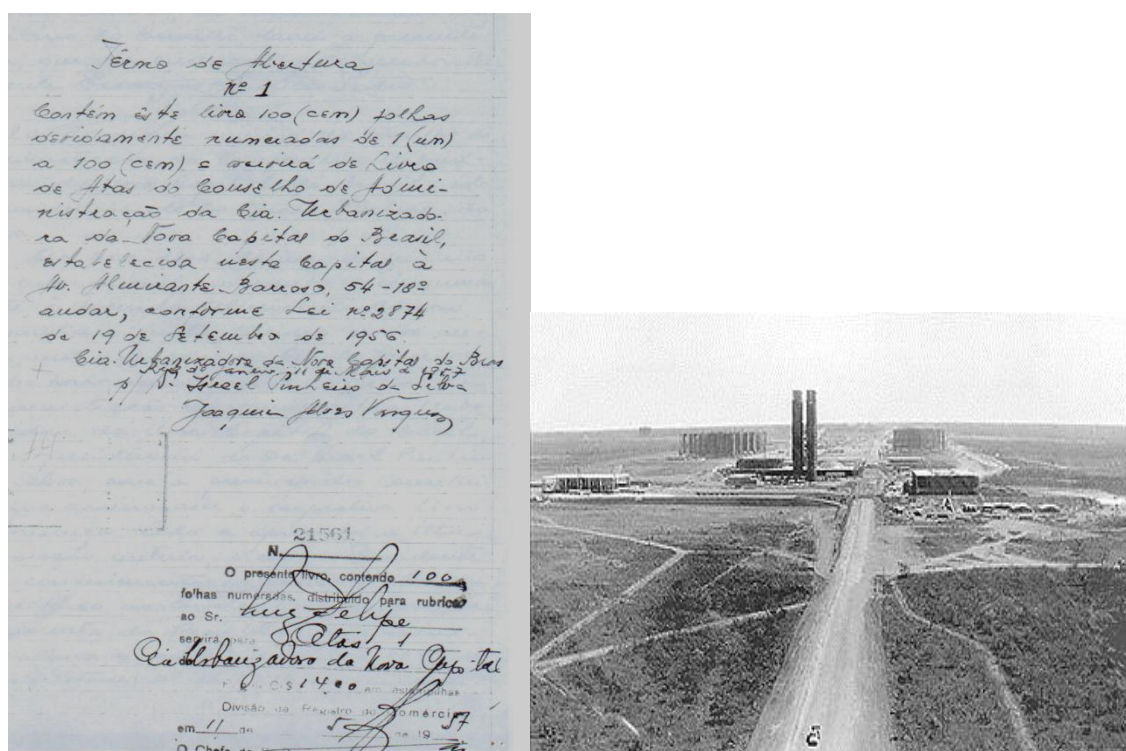 Têrmo de Abertura
nº 1
Contém êste livro 100 (cem) folhas
devidamente numeradas de 1 (um)
a 100 (cem) e servirá de Livro
de Atas do Conselho de Admi-
nistração da Cia. Urbanizado-
ra da Nova Capital do Brasil,
estabelecida nesta Capital à
Av. Almirante Barroso, 54-18º
andar, conforme Lei nº 2874
de 19 de Setembro de 1956.
Cia. Urbanizadora da Nova Capital do Bras
Rio de Janeiro, 11 de Maio de 1957
p/ Israel Pinheiro da Silva
Joaquim Alves
21561
N.
O presente livro, contendo 100
folhas numeradas, distribuído para rubrica
ao Sr. Luiz Felipe
servirá para Atas 1
Cia Urbanizadora da Nova Capital
C.$ 14.00 em estampilhas
Divisão de Registro do Comércio
em 11 de 5 de 19 57
O Chefe